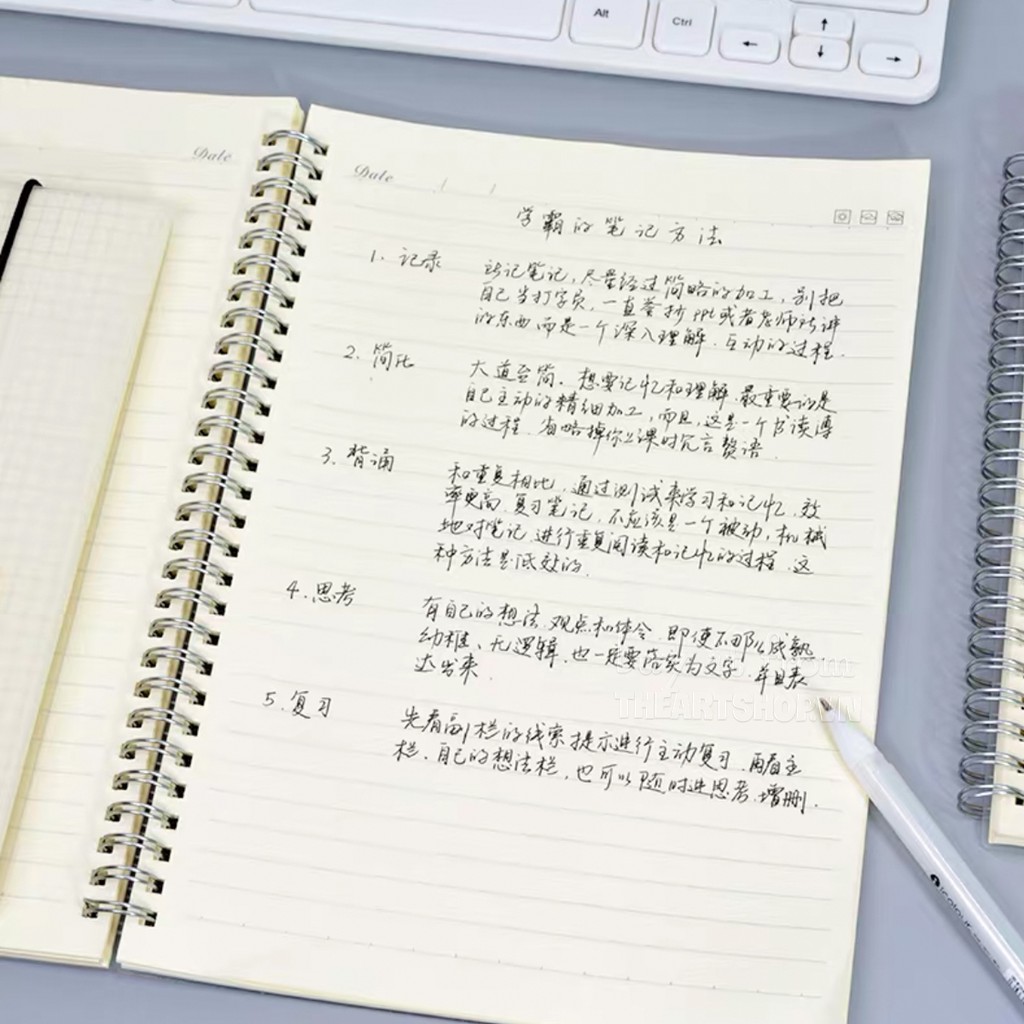 Alt
Ctrl
←
↑
↓
→
Date
Date / /
学霸的笔记方法
1. 记录
说记笔记,尽量经过简略的加工,别把
自己当打字员,一直荃抄PPT或者老师说讲
的东西,而是一个深入理解、互动的过程.
2. 简化
大道至简.想要记忆和理解,最重要的是
自己主动的精细加工,而且,这是一个书读薄
的过程.省略掉你上课时冗言赘语.
3. 背诵
和重复相比,通过测试来学习和记忆,效
率更高.复习笔记,不应该是一个被动,机械
地对笔记进行重复阅读和记忆的过程.这
种方法是低效的.
4. 思考
有自己的想法、观点和体会.即便不那么成熟
幼稚、无逻辑.也一定要落实为文字.并且表
达出来.
5. 复习
先看副栏的线索提示进行主动复习.再看主
栏.自己的想法栏,也可以随时进思考、增删.
THEARTSHOP.VN